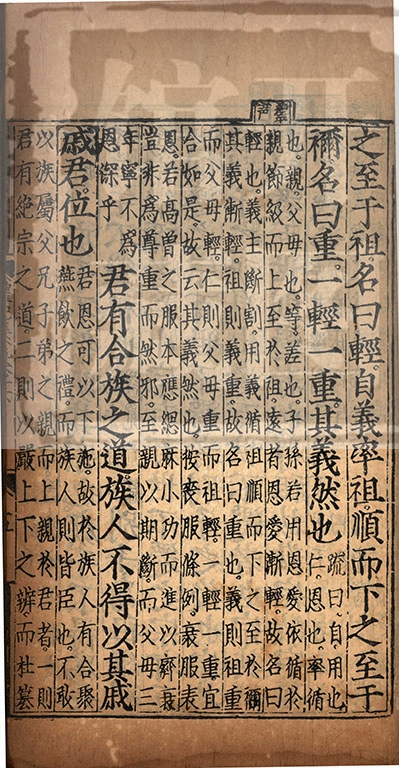 之至于祖名曰輕自義率祖順而下之至于
禰名曰重一輕一重其義然也 疏曰自用也仁恩也率循
也親父母也等差也子孫若用恩愛依循於
親節級而上至於祖遠者恩愛漸輕故名曰
輕也義主斷割用義循祖順而下之至於禰
其義漸輕祖則義重故名曰重也義則祖重
而父母輕仁則父母重而祖輕一輕一重宜
合如是故云其義然也按喪服條例衰服表
恩若高曾之服本應緦麻小功而進以齊衰
豈非為尊重而然邪至親以期斷而父母三
年寧不為恩深乎 君有合族之道族人不得以其戚
戚君位也 君恩可以下施故於族人有合聚燕飲之禮而族人則皆臣也不敢
以族屬父兄子弟之親而上親於君者一則
君有絕宗之道二則以嚴上下之辨而杜篡